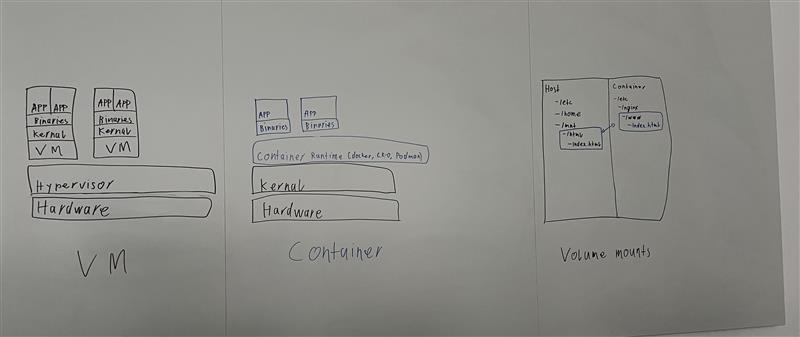 APP APP
Binaries
Kernal
VM
APP APP
Binaries
Kernal
VM
Hypervisor
Hardware
VM
APP
Binaries
APP
Binaries
Container Runtime (docker, CR-O, Podman)
Kernal
Hardware
Container
Host
-/etc
-/home
-/mnt
-/html
-index.html
Container
-/etc
-/nginx
-/www
-index.html
Volume mounts